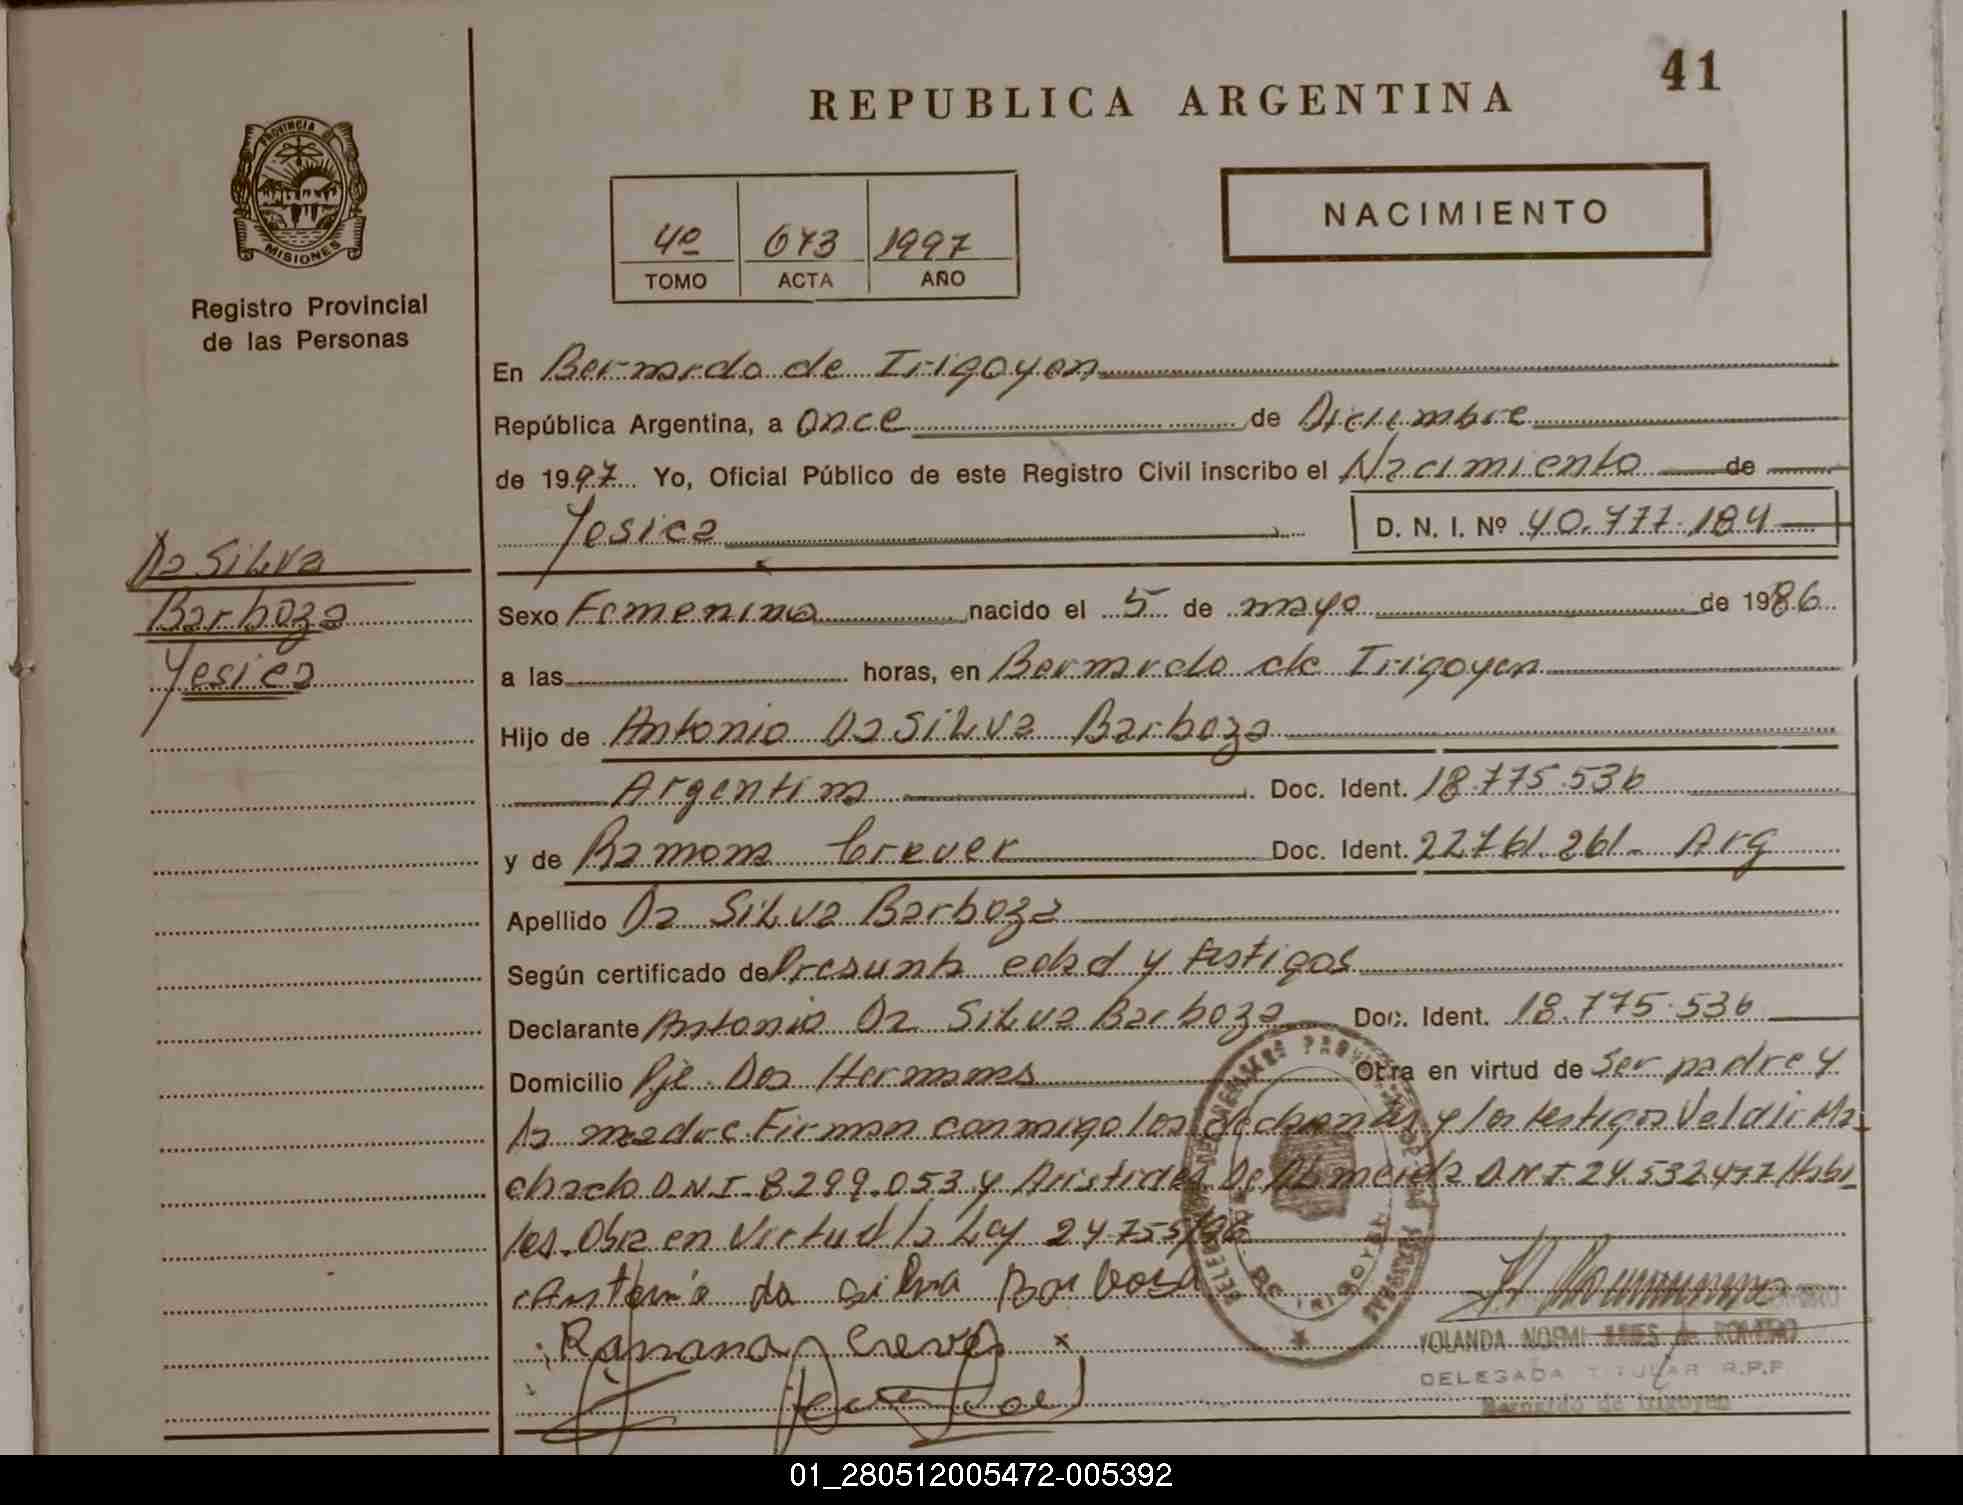 41
REPUBLICA ARGENTINA
PROVINCIA DE
MISIONES
Registro Provincial
de las Personas
4º 673 1997
TOMO ACTA AÑO
NACIMIENTO
En Bernardo de Irigoyen
República Argentina, a once de Diciembre
de 1997 Yo, Oficial Público de este Registro Civil inscribo el Nacimiento de
Yesica D. N. I. Nº 40.777.184
Da Silva
Barboza
Yesica
Sexo Femenino nacido el 5 de mayo de 1986
a las horas, en Bernardo de Irigoyen
Hijo de Antonio Da Silva Barboza
Argentina Doc. Ident. 18.775.536
y de Ramona Crever Doc. Ident. 22761.261- Arg
Apellido Da Silva Barboza
Según certificado de Presunta edad y testigos
Declarante Antonio Da Silva Barboza Doc. Ident. 18.775.536
Domicilio Pje. Dos Hermanas Obra en virtud de Ser padre y
la madre. Firman conmigo los declarantes y los testigos Valdir Ma-
chado D.N.I. 8.299.053 y Aristides De Almeida D.N.I. 24.532.477 Habi-
les. Obra en Virtud la Ley 24.755/96
Antonio da Silva Barboza
Ramona Crever x
YOLANDA NOEMI de ROMERO
DELEGADA TITULAR R.P.P
Bernardo de Irigoyen
01_280512005472-005392